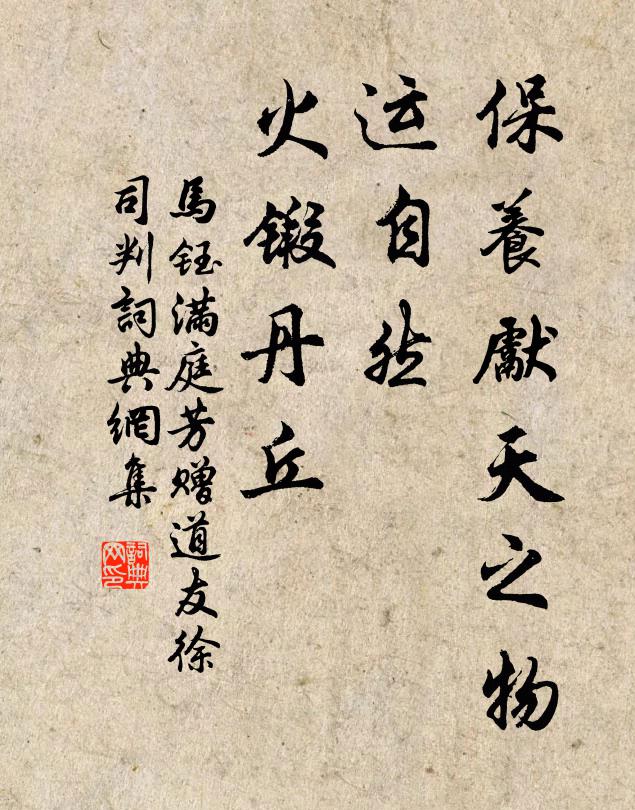 保養獻天之物
运自然
火鍛丹丘
馬鈺满庭芳赠道友徐
司判詞典網集
詞典
网印